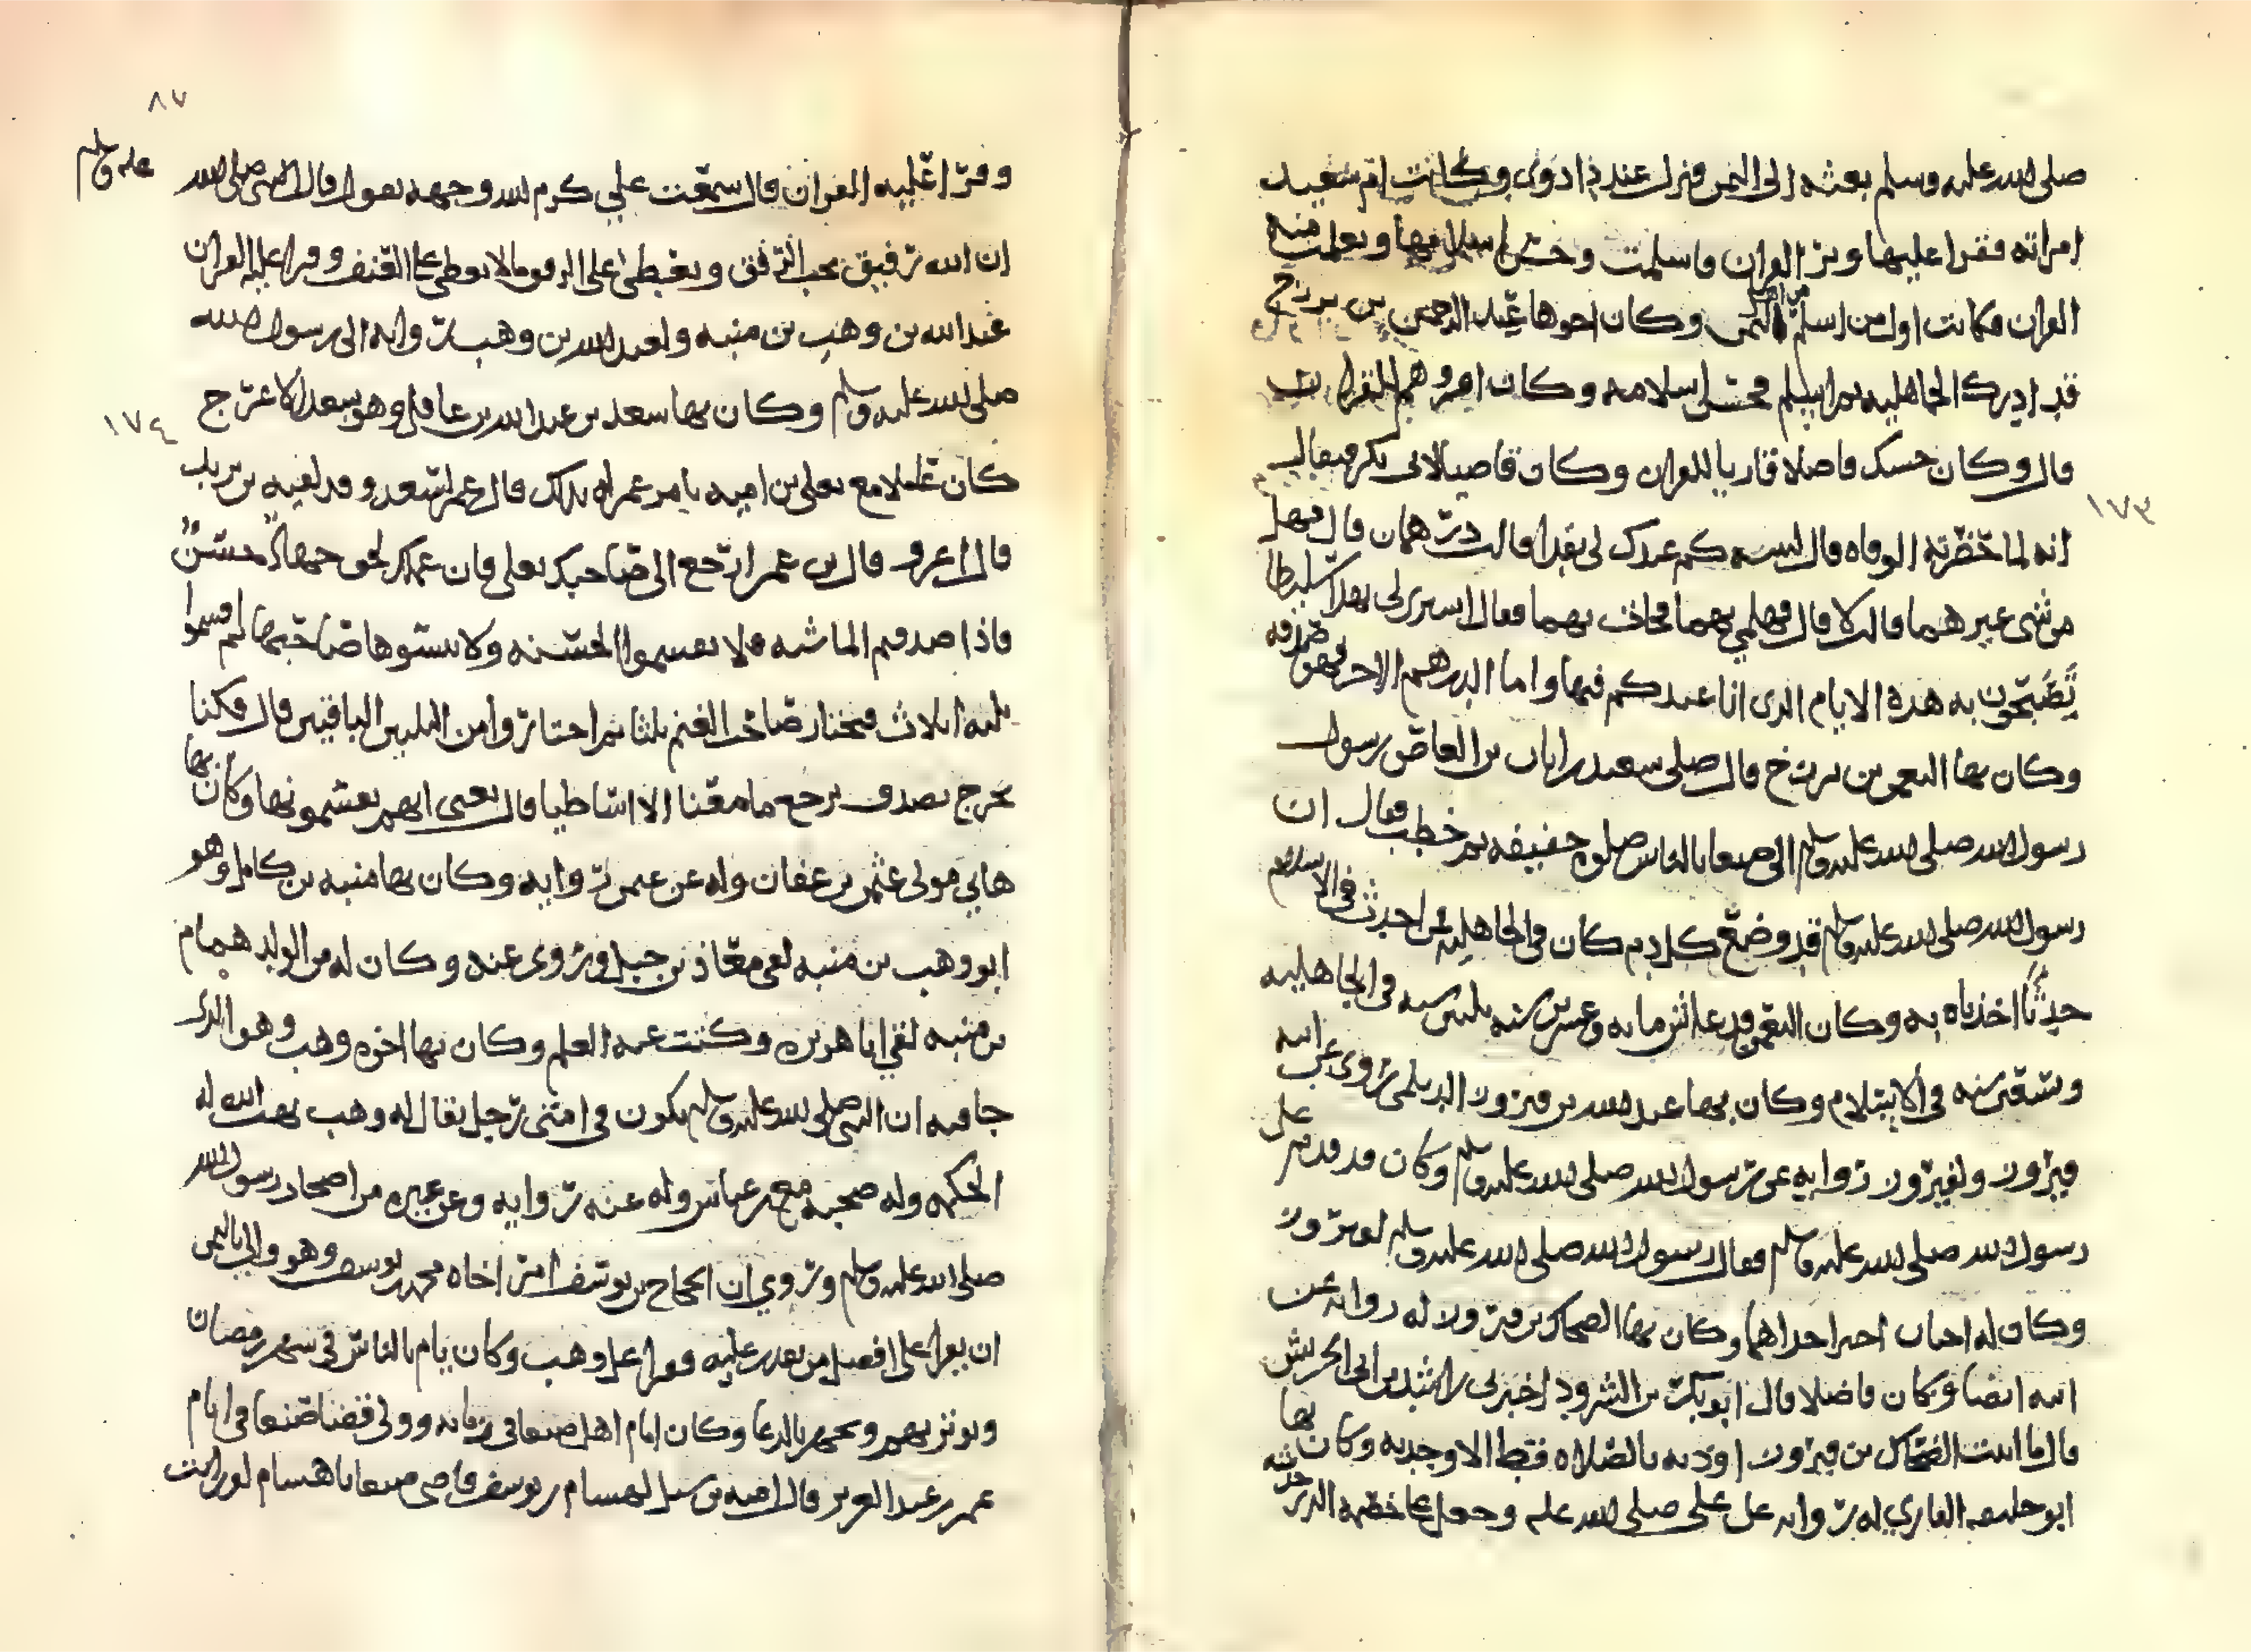 صلى الله عليه وسلم بعثه الى اليمن فنزل عند داذوى وكانت ام سعيد
امراته فقرا عليها وبر القران فاسلمت وحسن اسلامها وتعلمت منه
القران فكانت اول من اسلم من اهل اليمن وكان اخوها عبد الرحمن بن بزرج
قد ادرك الجاهليه ثم اسلم فحسن اسلامه وكان اقروهم للقران
قال وكان حسك فاضلا قاريا للقران وكان قاصيا لابى بكر فيقال
انه لما حضرته الوفاه قال لابنته كم عندك لى بقدا قالت درهمان قال فهل
من شى غير هما قالت لا قال فهلمي بهما فجات بهما فقال اسرى لى بهذا سليطا
تصبحون به هذه الايام الذى انا عندكم فيها واما الدرهم الاخر فهو صدقه
وكان بها النعمن بن بزرج قال صلى سعيد بن ابان بن العاص رسول
رسول الله صلى الله عليه وسلم الى صنعا بالناس صلوه خفيفه ثم خطب فقال ان
رسول الله صلى الله عليه وسلم قد وضع كل دم كان فى الجاهليه فمن احدث فى الاسلام
حدثا اخذناه به وكان النعمن قد عاش مايه وعشرين سنه ثلثين سنه فى الجاهليه
وستقين سنه فى الاسلام وكان بها عبد الله بن فيروز الديلمى روى عن ابيه
فيروز ولفيروز روايه عن رسول الله صلى الله عليه وسلم وكان قد قدم على
رسول الله صلى الله عليه وسلم فقال رسول الله صلى الله عليه وسلم لفيروز
وكان له اختان اختر احداهما وكان بها الضحاك بن فيروز له روايه عن
ابيه ايضا وكان فاضلا قال ابو بكر بن الشرود اخبرنى راشد بن ابى الحريش
قال ما اتيت الضحاك بن فيروز اوذنه بالصلاه قط الا وجدته وكان بها
ابو خليفه القاري له روايه عن على صلى الله عليه وجعل
وقرا عليه القران قال سمعت علي كرم الله وجهه يقول قال النبى صلى الله عليه وسلم
ان الله رفيق يحب الرفق ويعطى على الرفق ما لا يعطى على العنف وقرا عليه القران
عبد الله بن وهب بن منبه ولعبد الله بن وهب روايه الى رسول الله
صلى الله عليه وسلم وكان بها سعد بن عبد الله بن عاقل وهو سعد الاعرج
كان عاملا مع يعلى بن اميه يامر عمر له بذلك قال عمر لسعد وقد لقيه
قال اعرو قال بن عمر ارجع الى صاحبك يعلى فان عملك بحق جهاد حسن
فاذا صدقتم الماشيه فلا تقسموا الحسنه ولا تنسوها صاحبها ثم اقسموا
ثلثه اثلاث فيختار صاحب الغنم ثلثا ثم اختاروا من الثلثين الباقيين قال فكنا
نخرج نصدق ثم نرجع ما معنا الا اسياطنا قال يعنى انهم يقسمونها وكان بها
هاني مولى عثمن بن عفان وله عن عثمن روايه وكان بها منبه بن كامل وهو
ابو وهب بن منبه لقى معاذ بن جبل وروى عنه وكان له من الولد همام
بن منبه لقي ابا هريره وكتبت عنه العلم وكان بها اخوه وهب وهو الذى
جا فيه ان النبى صلى الله عليه وسلم يكون فى امتى رجل يقال له وهب يهب الله له
الحكمه وله صحبه مع بن عباس وله عنه روايه وعن غيره من اصحاب رسول الله
صلى الله عليه وسلم وروي ان الحجاج بن يوسف امر اخاه محمد بن يوسف وهو والى باليمن
ان يقرا على افضل من يقدر عليه فقرا على وهب وكان يام بالناس فى شهر رمضان
ويوتر بهم ويجهر بالدعا وكان امام اهل صنعا فى زمانه وولى قضا صنعا فى ايام
عمر بن عبد العزيز قال اميه بن شبل لهشام بن يوسف قاضى صنعا يا هشام لو رايت
٨٧
١٧٣
١٧٤